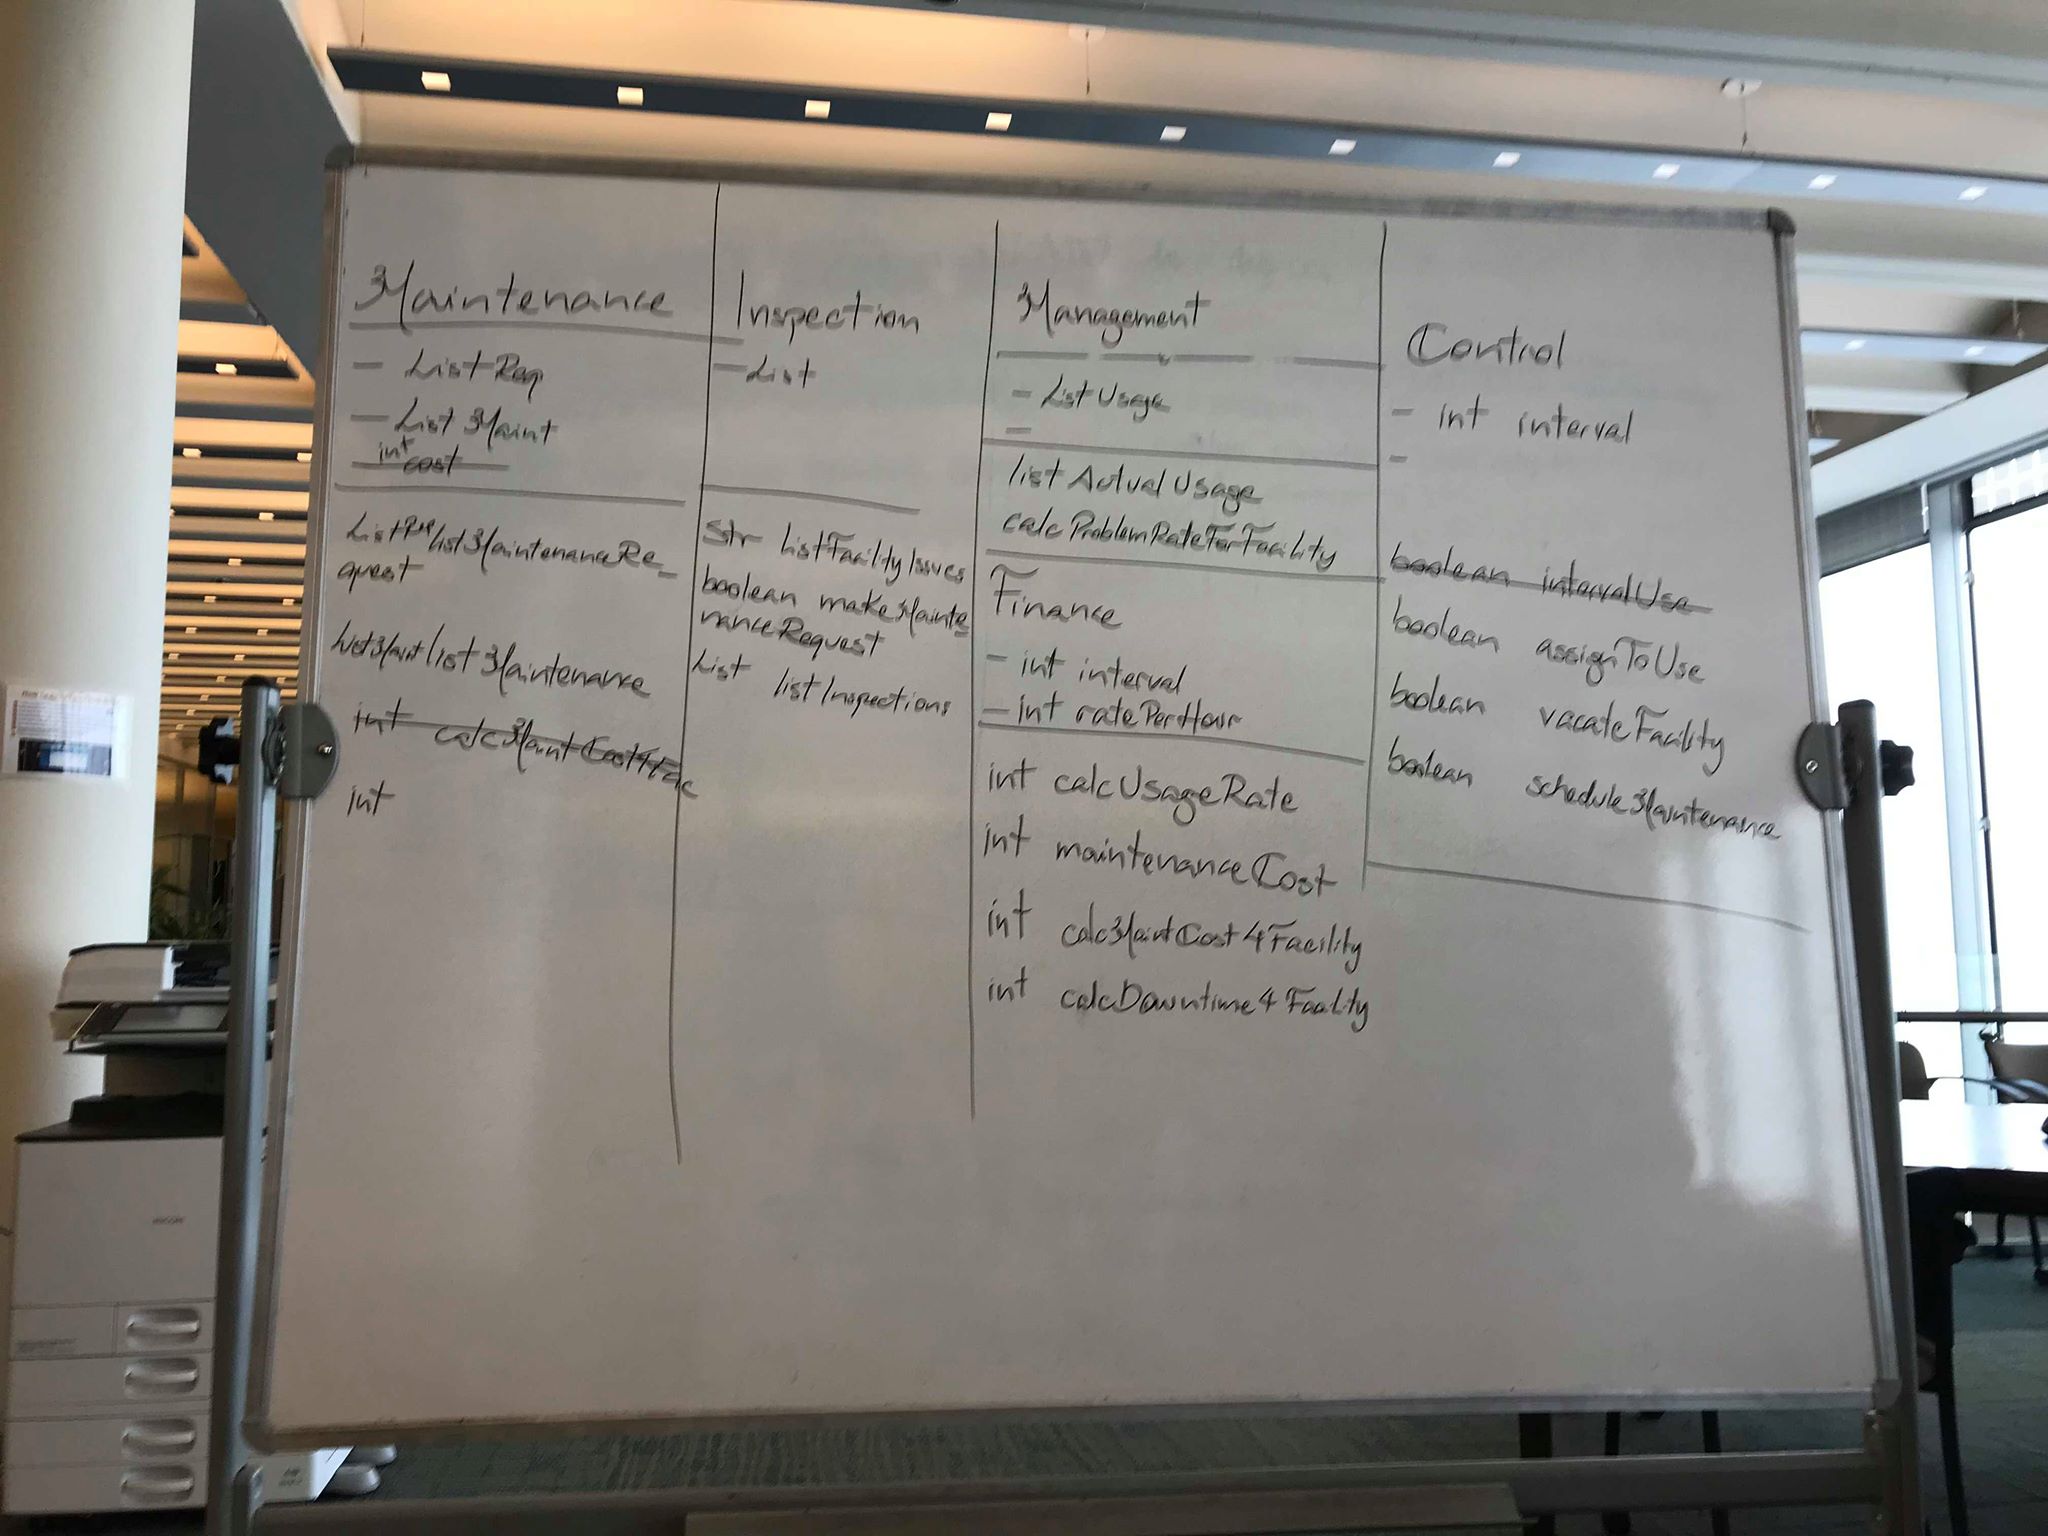 Maintenance
- List Req
- List Maint
int cost
ListReq listMaintenanceRe-
quest
ListMaint listMaintenance
int calcMaintCost4Fac
int
Inspection
- List
str listFacilityIssues
boolean makeMainte-
nanceRequest
List listInspections
Management
- List Usage
-
list Actual Usage
calcProblemRateForFacility
Finance
- int interval
- int ratePerHour
int calcUsageRate
int maintenanceCost
int calcMaintCost4Facility
int calcDowntime4Facility
Control
- int interval
-
boolean intervalUse
boolean assignToUse
boolean vacateFacility
boolean scheduleMaintenance
RICOH